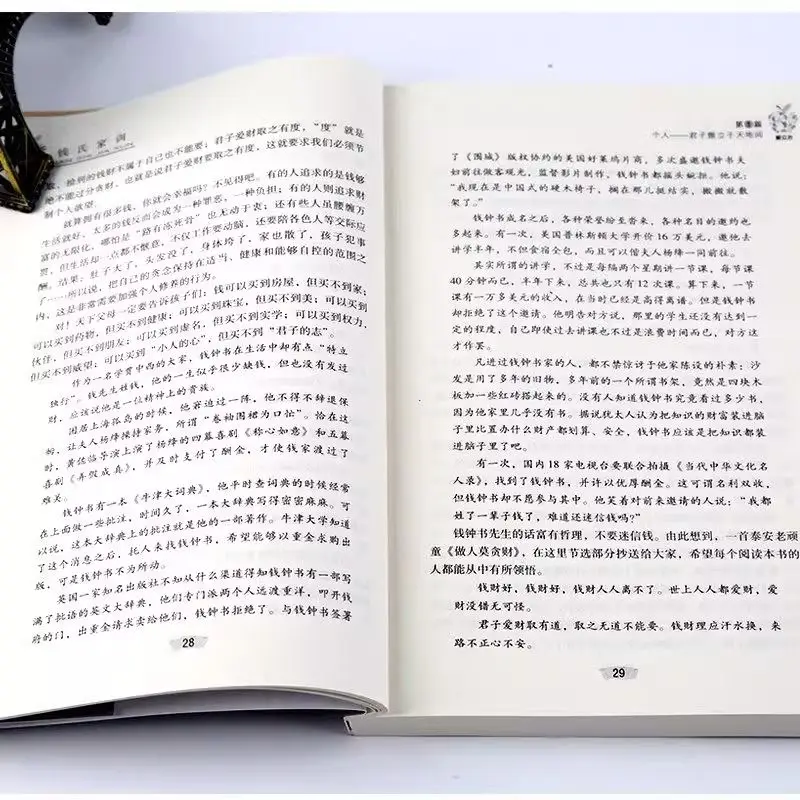 钱氏家训
、捡别的钱财不属于自己也不能要；君子爱财取之有度，“度”就是
绝不能过分贪财，也就是说君子爱财要取之有度，这就要求我们必须节
制个人欲望。
就算拥有很多钱，你就会幸福吗？不见得吧。有的人追求的是钱够
生活就好，太多的钱反而会成为一种罪恶，一种负担；有的人则追求财
富的无限化，哪怕是“路有冻死骨”也无动于衷；还有些人虽腰缠万
贯，但生活却一点都不惬意，不仅工作要动脑，还要陪各色人等交际应
酬。结果：肚子大了，头发没了，身体垮了，家也散了，孩子犯事
了……所以说，把自己的贪念保持在适当、健康和能够自控的范围之
内，这是非常需要加强个人修养的行为。
对！天下父母一定要告诉孩子们：钱可以买到房屋，但买不到家；
可以买到药物，但买不到健康；可以买到珠宝，但买不到美；可以买到
伙伴，但买不到朋友；可以买到虚名，但买不到实学；可以买到权力，
但买不到威望；可以买到“小人的心”，但买不到“君子的志”。
作为一名学贯中西的大家，钱钟书在生活中却有点“特立
独行”。钱先生姓钱，他的一生似乎很少缺钱，但也没有发过
财，应该说他是一位精神上的贵族。
困居上海孤岛的时候，他窘迫过一阵，他不得不辞退保
姆，让夫人杨绛操持家务，所谓“卷袖围裙为口忙”。恰在这
时，黄佐临导演上演了杨绛的四幕喜剧《称心如意》和五幕
喜剧《弄假成真》，并及时支付了酬金，才使钱家渡过了
难关。
钱钟书有一本《牛津大词典》，他平时查词典的时候经常
在上面做一些批注，时间久了，一本大辞典写得密密麻麻。可
以说，这本大辞典上的批注就是他的一部著作。牛津大学知道
了这个消息之后，托人来找钱钟书，希望能够以重金求购出
版，可是钱钟书不为所动。
英国一家知名出版社不知从什么渠道得知钱钟书有一部写
满了批语的英文大辞典，他们专门派两个人远渡重洋，叩开钱
府的门，出重金请求卖给他们，钱钟书拒绝了。与钱钟书签署
28
第
篇
个人——君子傲立于天地间
了《围城》版权协约的美国好莱坞片商，多次盛邀钱钟书夫
妇前往做客观光，监督影片制作，钱钟书都摇头婉拒。他说：
“我现在是中国式的硬木椅子，搁在那儿挺结实，搬搬就散
架了。”
钱钟书成名之后，各种荣誉纷至沓来，各种名目的邀约也
多起来。有一次，美国普林斯顿大学开价16万美元，邀他去
讲学半年，不但食宿全包，而且可以偕夫人杨绛一同前往。
其实所谓的讲学，不过是每隔两个星期讲一节课，每节课
40分钟而已，半年下来，总共也只有12次课。算下来，一节
课有一万多美元的收入，在当时已经是高得离谱。但是钱钟书
却拒绝了这个邀请。他明告对方说，那里的学生还没有达到一
定的程度，自己即使过去讲课也不过是浪费时间而已，对方这
才作罢。
凡进过钱钟书家的人，都不禁惊讶于他家陈设的朴素：沙
发是用了多年的旧物，多年前的一个所谓书架，竟然是四块木
板加一些红砖搭起来的。没有人知道钱钟书究竟看过多少书，
因为他家里几乎没有书。据说犹太人认为把知识的财富装进脑
子里比置办什么财产都划算、安全，钱钟书应该是把知识都装
进脑子里了吧。
有一次，国内18家电视台要联合拍摄《当代中华文化名
人录》，找到了钱钟书，并许以优厚酬金。这可谓名利双收，
但钱钟书却不愿参与其中。他笑着对前来邀请的人说：“我都
姓了一辈子钱了，难道还迷信钱吗？”
钱钟书先生的话富有哲理，不要迷信钱。由此想到，一首泰安老顽
童《做人莫贪财》，在这里节选部分抄送给大家，希望每个阅读本书的
人都能从中有所领悟。
钱财好，钱财好，钱财人人离不了。世上人人都爱财，爱
财没错无可怪。
君子爱财取有道，取之无道不能要。钱财理应汗水换，来
路不正心不安。
29